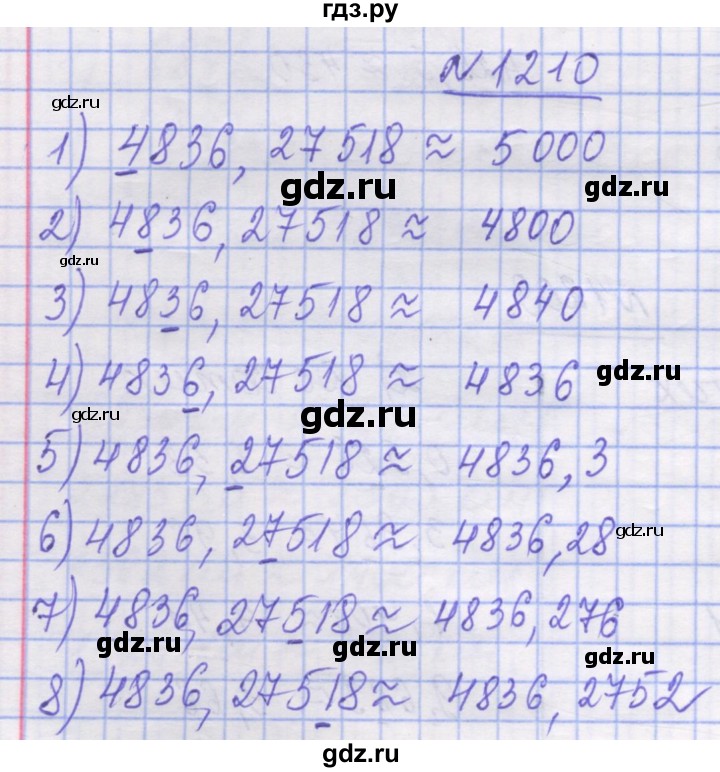 гдз.ру
№ 1210
gdz.ru
1) 4836, 27518 ≈ 5000
gdz.ru
gdz.ru
2) 4836, 27518 ≈ 4800
gdz.ru
3) 4836, 27518 ≈ 4840
4) 4836, 27518 ≈ 4836
gdz.ru
gdz.ru
gdz.ru
5) 4836, 27518 ≈ 4836,3
6) 4836, 27518 ≈ 4836,28
gdz.ru
7) 4836, 27518 ≈ 4836,276
gdz.ru
gdz.ru
gdz.ru
8) 4836, 27518 ≈ 4836,2752
gdz.ru